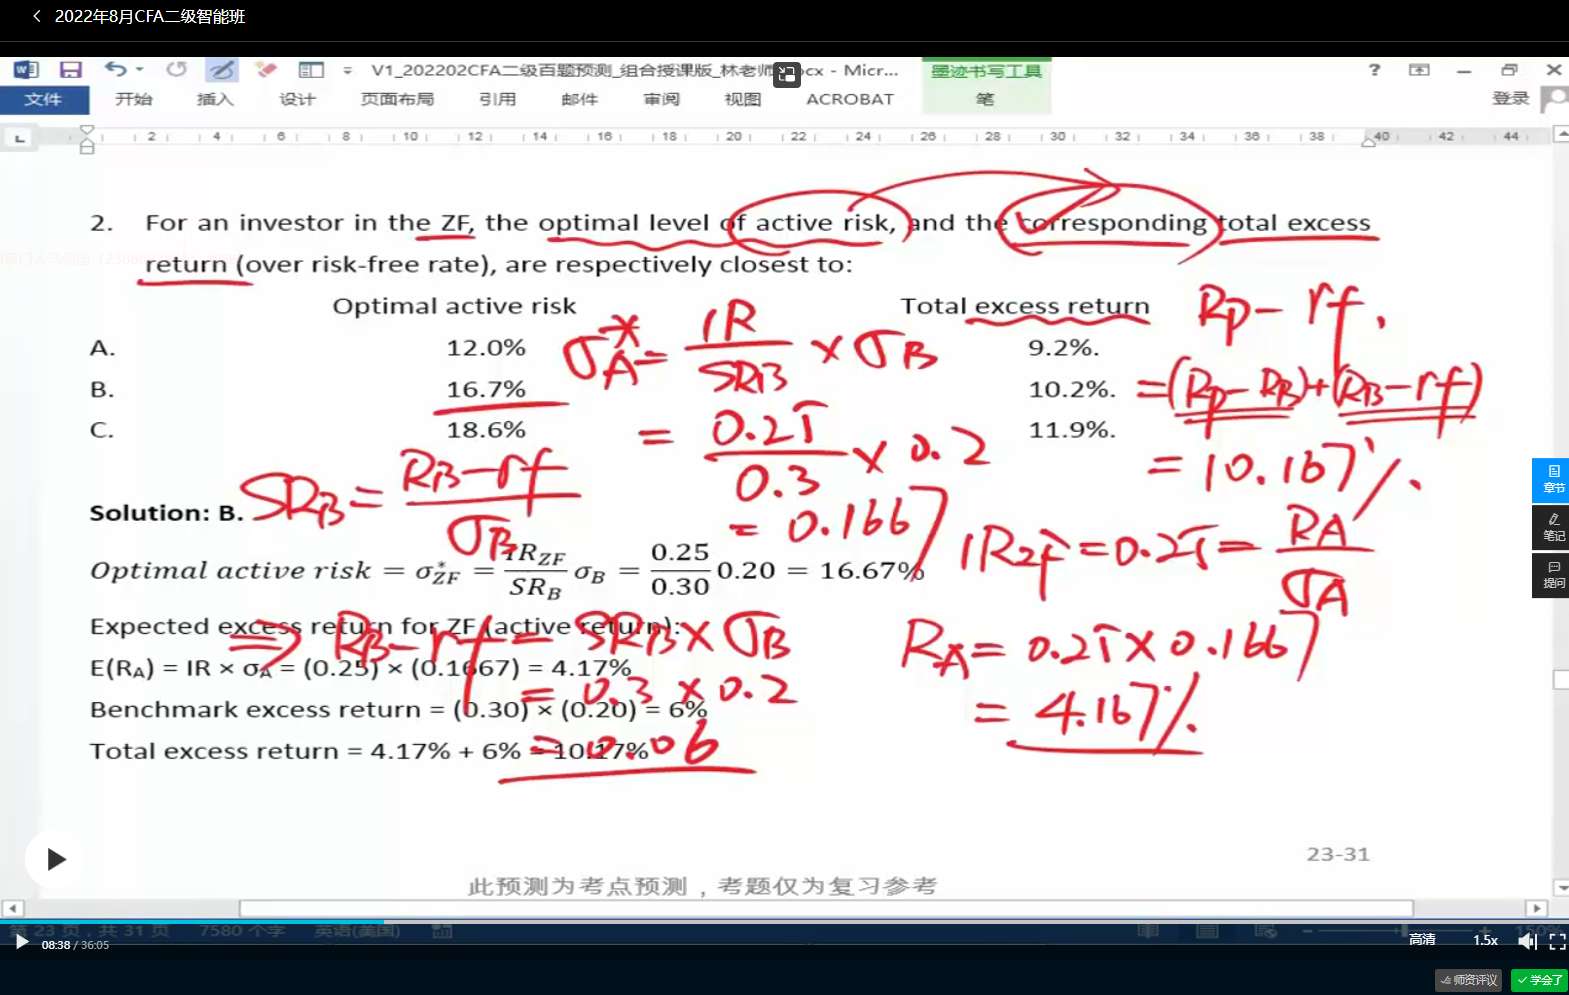 2022年8月CFA二级智能班
V1_202202CFA二级百题预测_组合授课版_林老师 ocx - Micr...
墨迹书写工具
文件 开始 插入 设计 页面布局 引用 邮件 审阅 视图 ACROBAT 笔 登录
2 4 6 8 10 12 14 16 18 20 22 24 26 28 30 32 34 36 38 40 42 44
2. For an investor in the ZF, the optimal level of active risk, and the corresponding total excess
return (over risk-free rate), are respectively closest to:
Optimal active risk Total excess return
Rp - rf.
A. 12.0% 9.2%.
σA* = IR/SRB × σB
B. 16.7% 10.2%.
= (Rp - RB) + (RB - rf)
C. 18.6% 11.9%.
= 0.25/0.3 × 0.2
= 10.167%.
SRB = RB - rf/σB
= 0.1667
Solution: B.
IRZF = 0.25 = RA/σA
Optimal active risk = σ*ZF = IRZF/SRB σB = 0.25/0.30 0.20 = 16.67%
Expected excess return for ZF (active return):
⇒ RB - rf = SRB × σB
RA = 0.25 × 0.1667
E(RA) = IR × σA = (0.25) × (0.1667) = 4.17%
= 0.3 × 0.2
= 4.167%.
Benchmark excess return = (0.30) × (0.20) = 6%
Total excess return = 4.17% + 6% = 10.17%
= 0.06
章节
笔记
提问
23-31
此预测为考点预测，考题仅为复习参考
第 23 页，共 31 页 7580 个字 英语(美国) 150%
08:38 / 36:05 高清 1.5x
师资评议 学会了